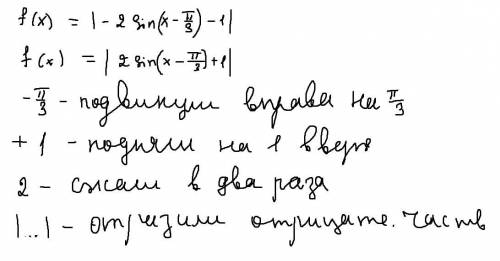 f(x) = |-2 sin(x-π/3)-1|
f(x) = |2 sin(x-π/3)+1|
-π/3 - подвинули вправа на π/3
+ 1 - подняли на 1 вверх
2 - сжали в два раза
|...| - отризили отрицате. часть